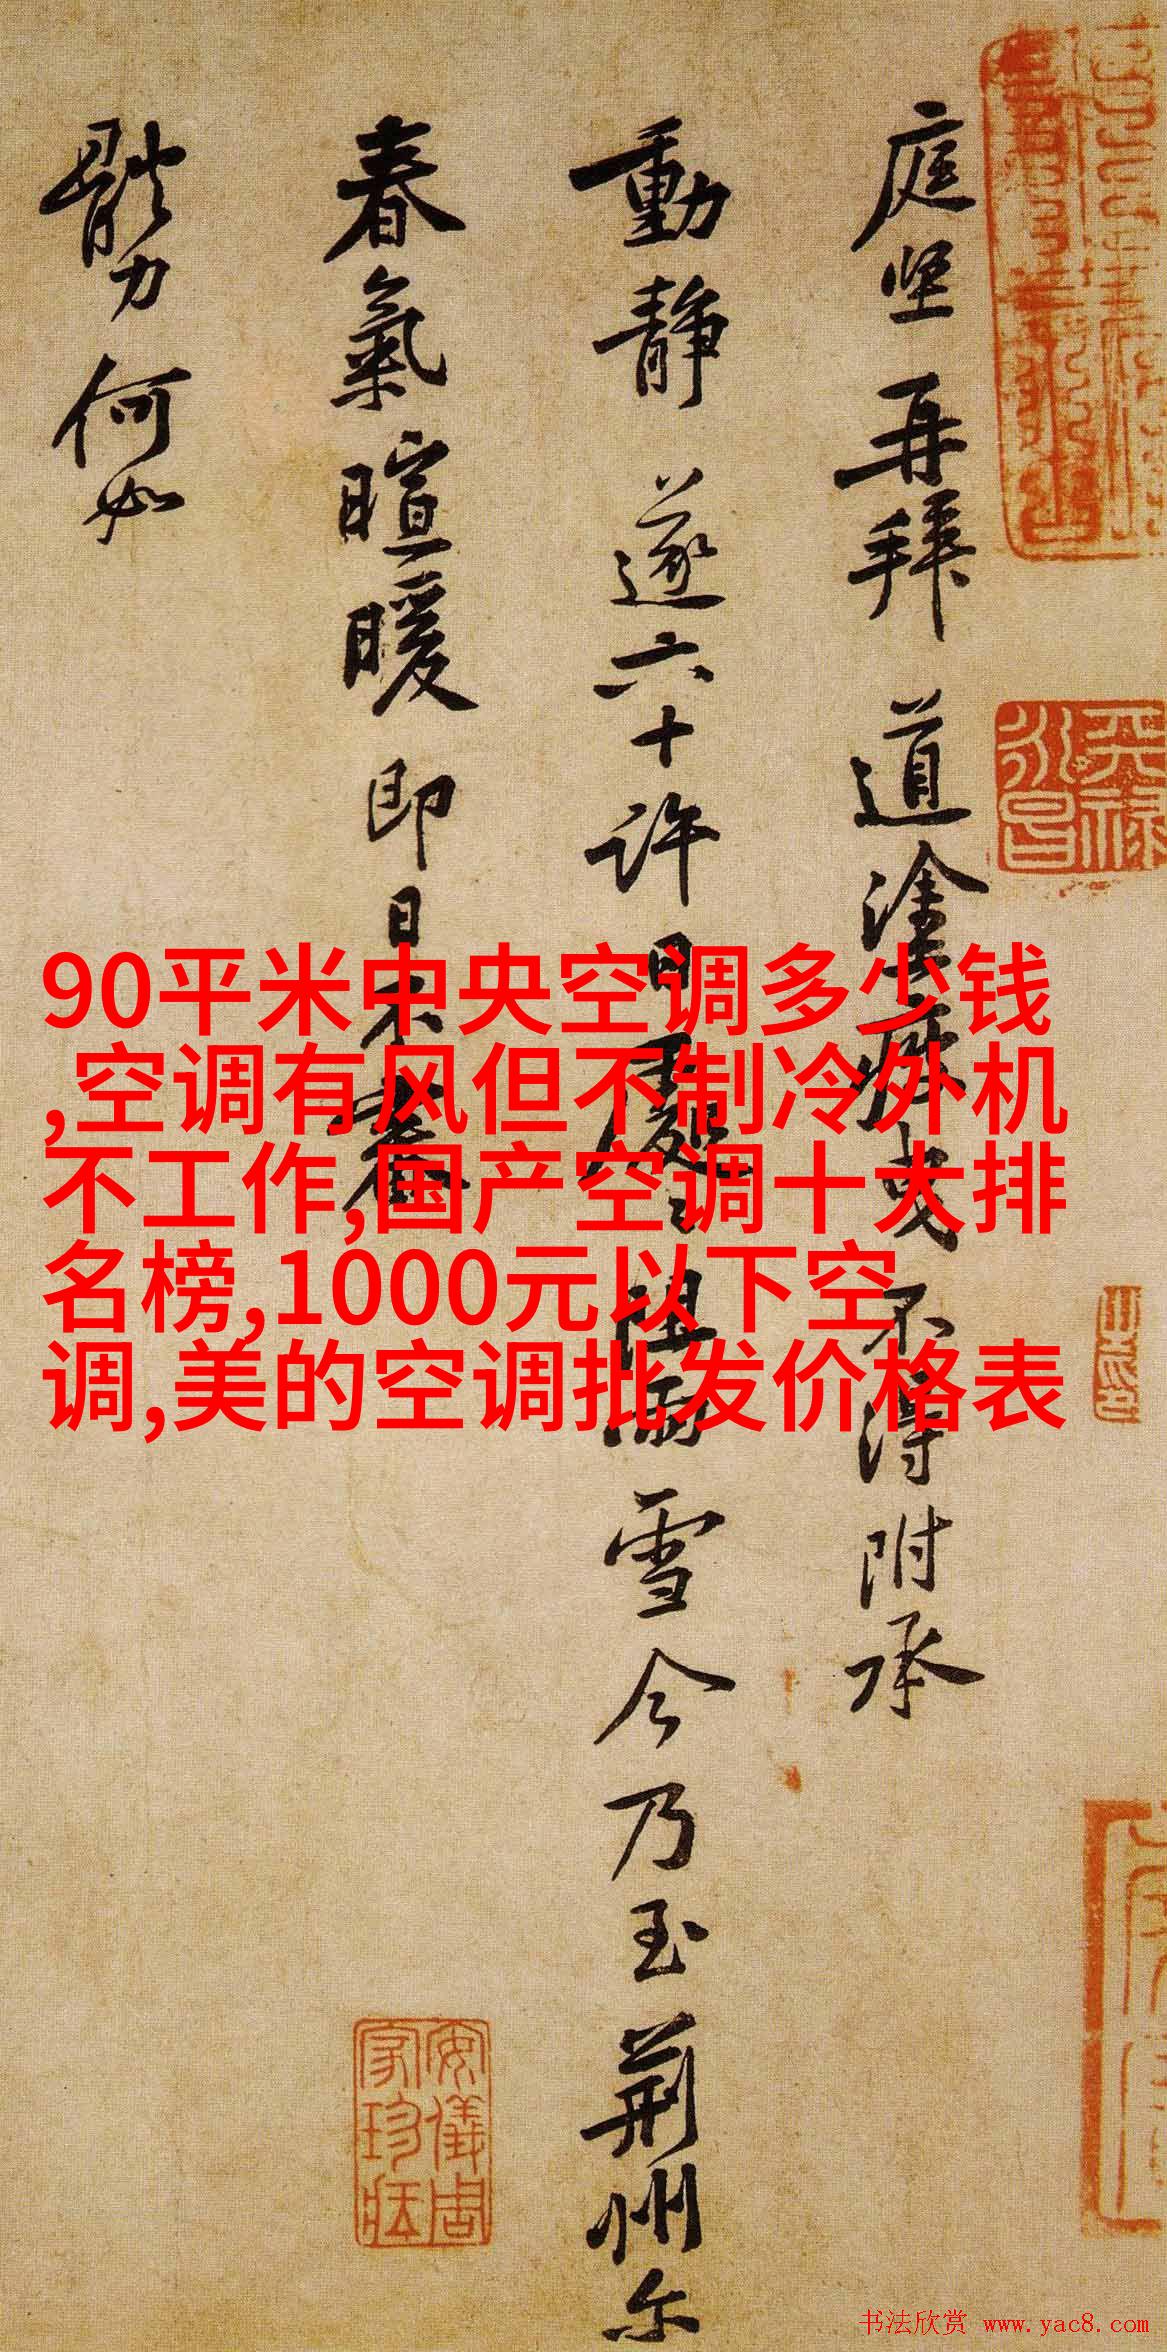 庭坚再拜道塗疲曳不得附承
動静遂六十许日
阻雨雪今乃至荆州尔
春氣暄暖即日不審
體力何如
90平米中央空调多少钱
,空调有风但不制冷外机
不工作,国产空调十大排
名榜,1000元以下空
调,美的空调批发价格表
天禄
永昌
安儀周
家珍藏
书法欣赏 www.yac8.com